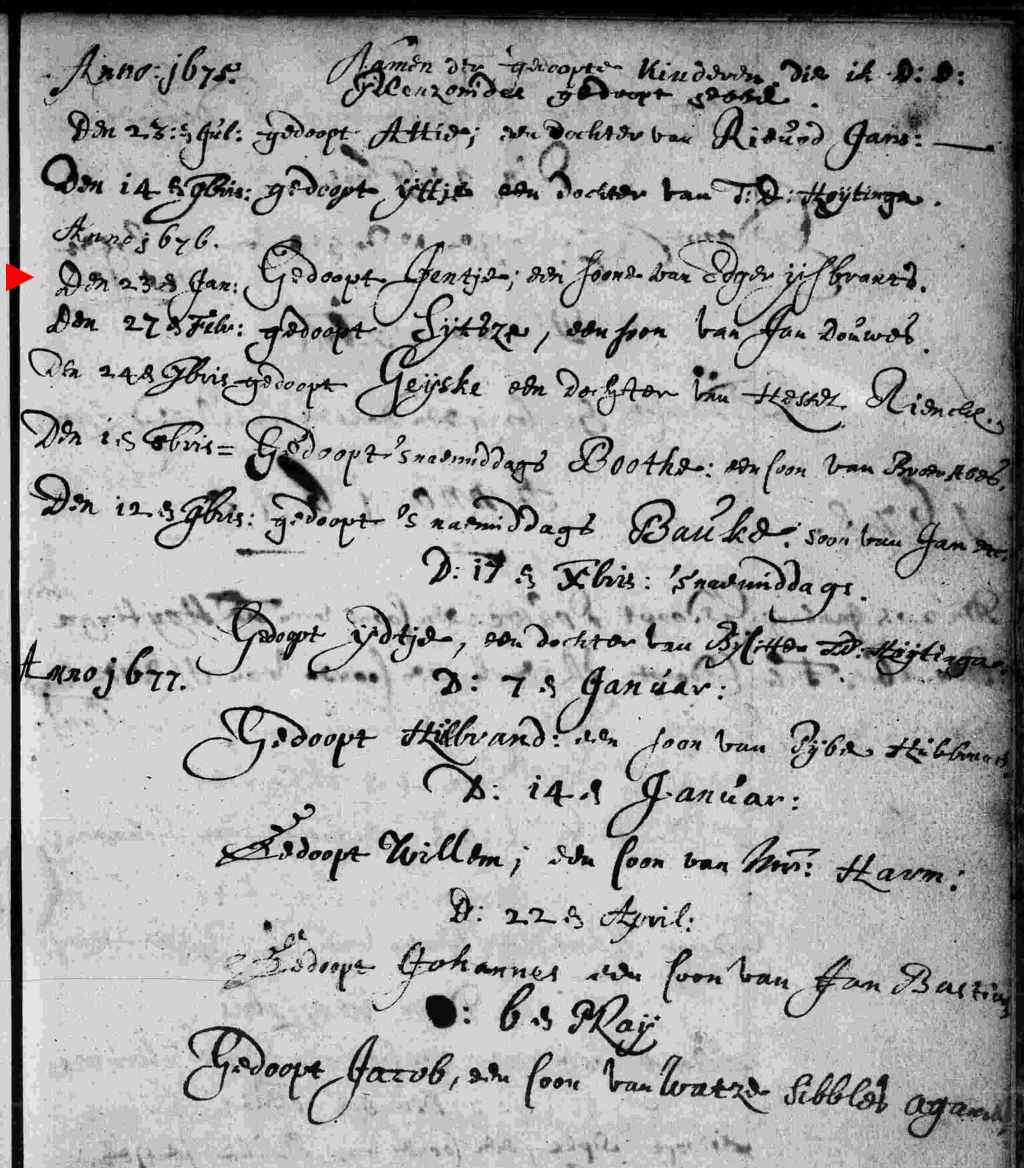 Anno: 1675. Namen der gedoopte Kinderen die ik D: D:
gedoopt hebbe.
Den 23: en Jul: gedoopt Attie; een dochter van Rieuŏd Jans:
Den 14 en 9bris: gedoopt yttje een dochter van T: D: Hoytinga.
Anno 1676.
Den 23 en Jan: Gedoopt Jentje; een soone van Edger ysbrants.
Den 27 en Febr: gedoopt Sytsze, een soon van Jan Douwes.
Den 24 en 9bris gedoopt Geyske een dochter van Hessel Rienckx.
Den 1 en 8bris = Gedoopt 's naemiddags Boothe: een soon van Broer
Den 12 en 9bris: gedoopt 's naemiddags Bauke. soon van Jan
D: 17 en Xbris: 's naemiddags.
Gedoopt ydtje, een dochter van D: Hoytinga.
Anno 1677. D: 7 en Januar:
Gedoopt Hilbrand: een soon van Pybe
D: 14 en Januar:
Gedoopt Willem; een soon van Mr: Harm:
D: 22 en April:
Gedoopt Johannes een soon van Jan Bastian
: 6 en May
Gedoopt Jacob, een soon van Watze Sibbles